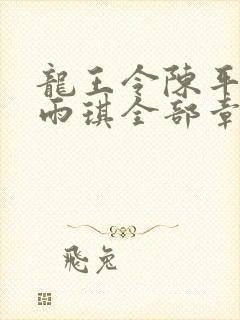 龍王令陳平
雨琪全部章
飛兔